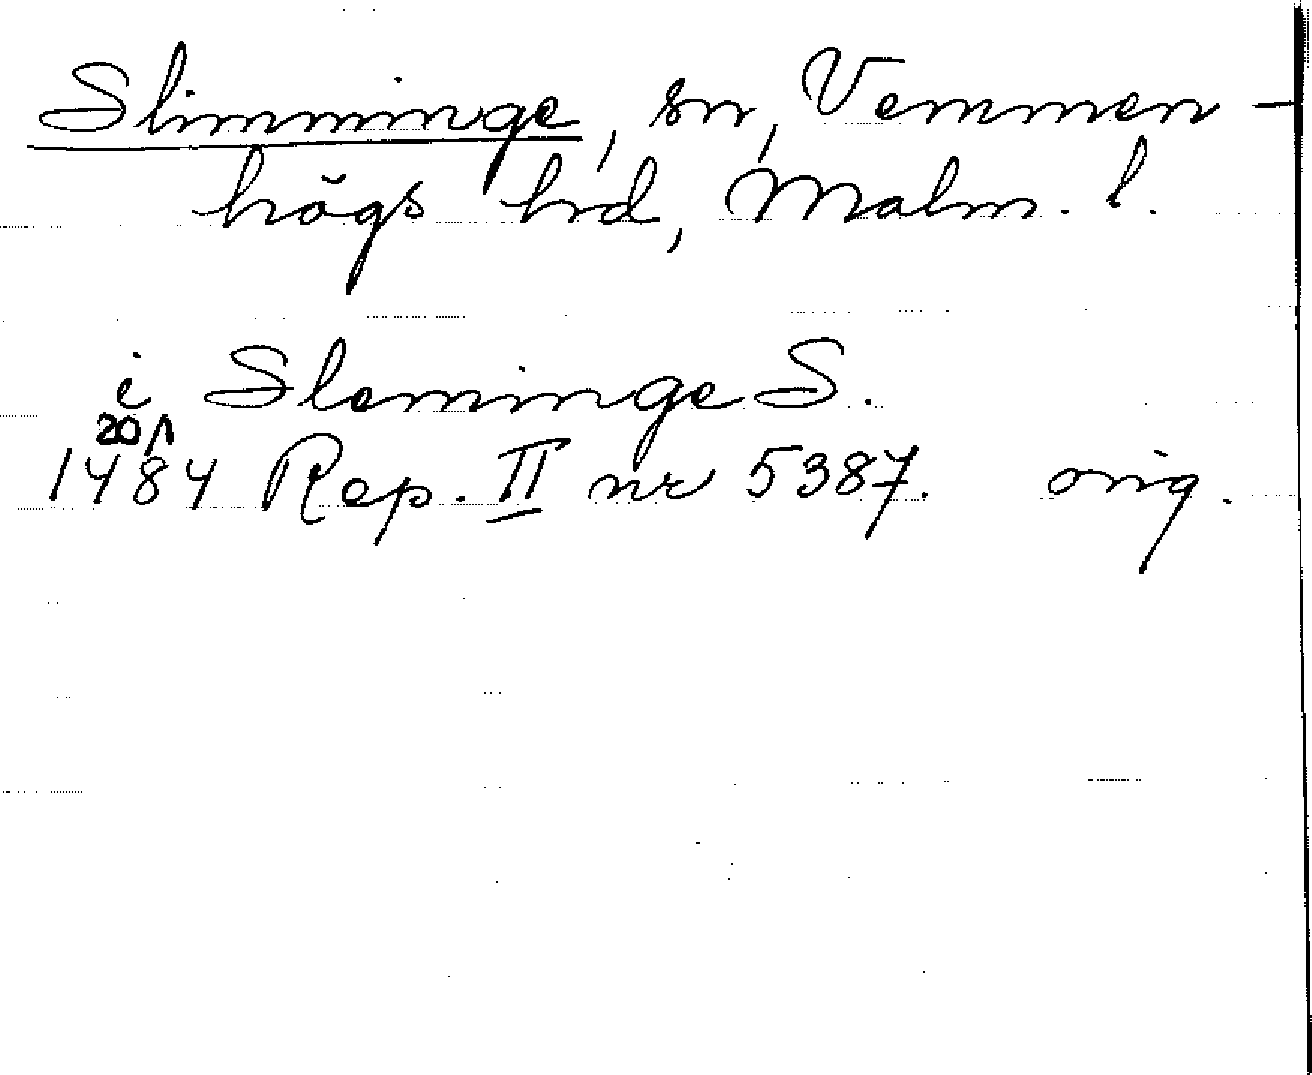 Slimminge, sn, Vemmen-
högs hd, Malm. l.
i Sleminge S.
20/1
1484 Rep. II nr 5387. orig.